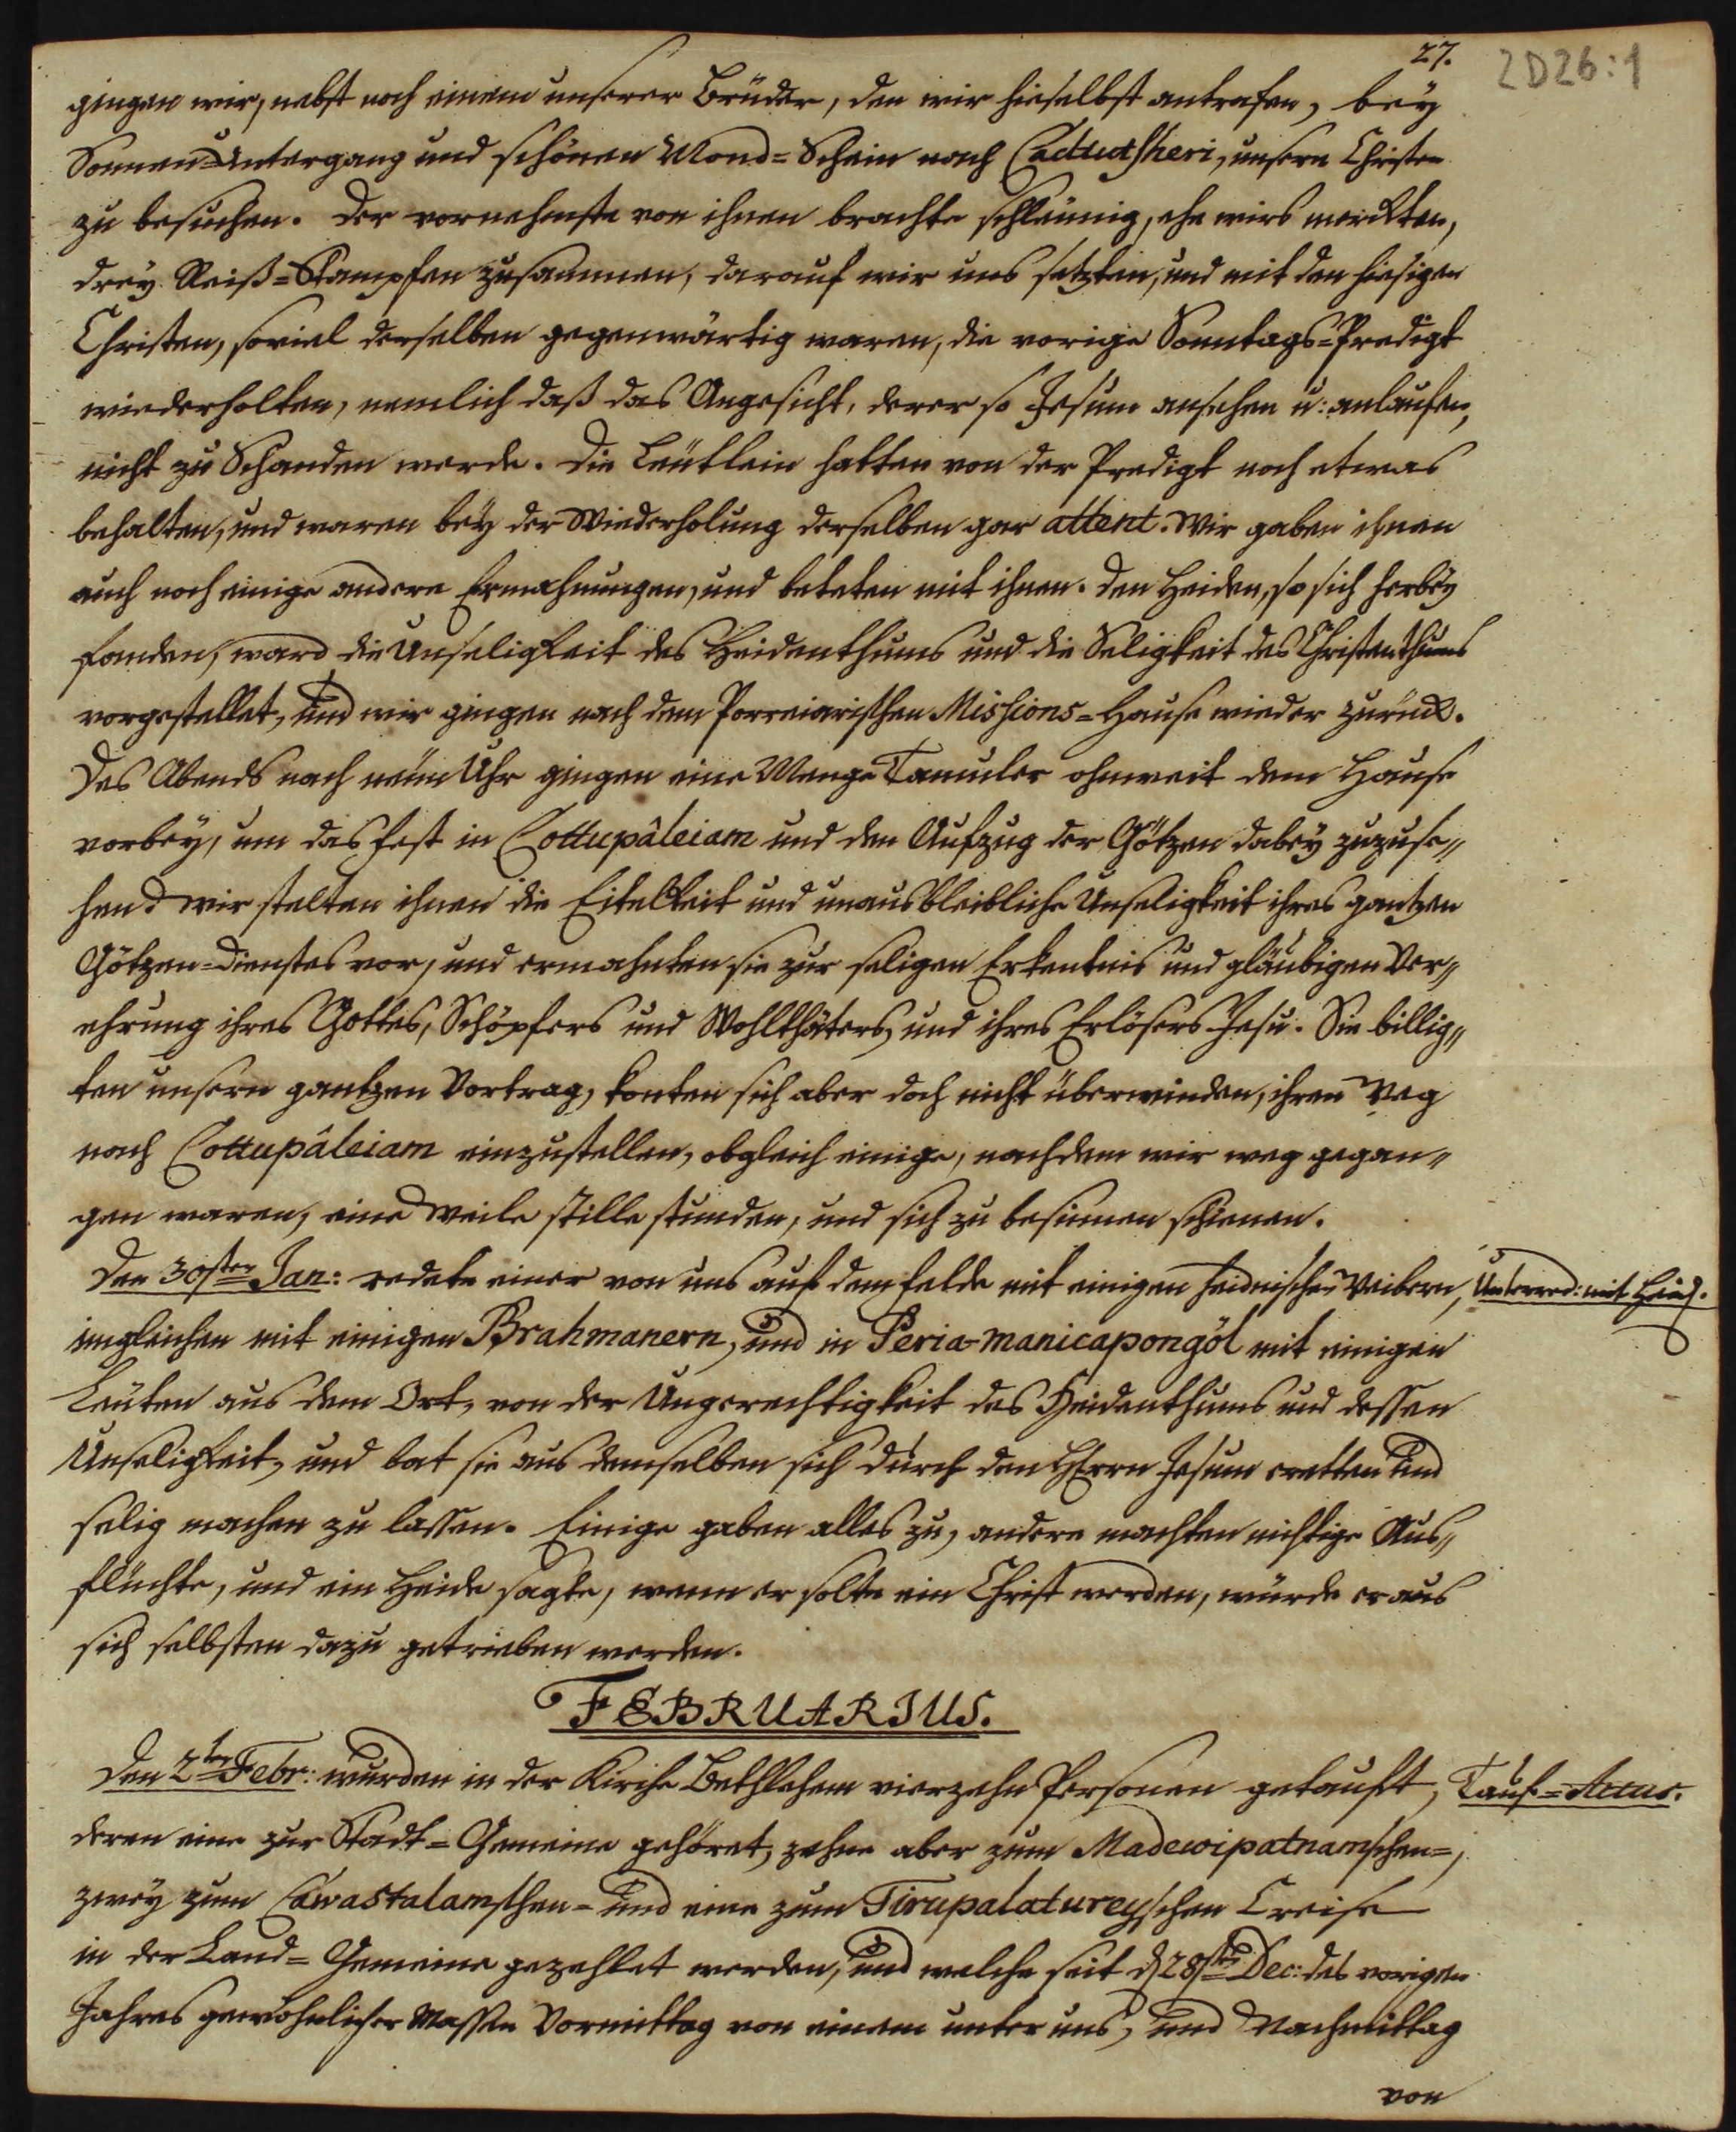 27.
2D26:1
gingen wir, nebst noch einem unserer Brüder, den wir hieselbst antrafen, bey
Sonnen-Untergang und schönen Mond=Schein nach Cadutsheri, unsern Christen
zu besuchen. Der vornehmste von ihnen brachte schleünig, ehe wirs merckten,
drey Reiß=Stampfen zusammen, darauf wir uns setzten, und mit den hiesigen
Christen, soviel derselben gegenwärtig waren, die vorige Sonntags=Predigt
wiederholten, nemlich daß das Angesicht, derer so Jesum ansehen u: anlaufen,
nicht zu Schanden werde. Die Leütlein hatten von der Predigt noch etwas
behalten, und waren bey der Wiederholung derselben gar attent. Wir gaben ihnen
auch noch einige andere Ermahnungen, und beteten mit ihnen. Den Heiden, so sich herbey
fanden, ward die Unseligkeit des Heidenthums und die Seligkeit des Christenthums
vorgestellet, und wir gingen nach dem Porreiarischen Missions=Hause wieder zurück.
Des Abends nach neün Uhr gingen eine Menge Tamuler ohnweit dem Hause
vorbey, um das Fest in Cottupâleiam und den Aufzug der Götzen dabey zuzuse„
hen. Wir stelten ihnen die Eitelkeit und unausbleibliche Unseligkeit ihres gantzen
Götzen=Dienstes vor, und ermahnten sie zur seligen Erkentnis und gläubigen Ver„
ehrung ihres Gottes, Schöpfers und Wohlthäters, und ihres Erlösers Jesu. Sie billig„
ten unsern gantzen Vortrag, konten sich aber doch nicht überwinden, ihren Weg
nach Cottupâleiam einzustellen, obgleich einige, nachdem wir weg gegan„
gen waren, eine Weile stille stunden, und sich zu besinnen schienen.
Den 30sten Jan: redete einer von uns auf dem Felde mit einigen heidnischen Weibern,
Unterred: mit Heid.
imgleichen mit einigen Brahmanern, und in Peria-manicapongöl mit einigen
Leüten aus dem Ort, von der Ungerechtigkeit des Heidenthums und dessen
Unseligkeit, und bat sie aus demselben sich durch den HErrn Jesum eretten und
selig machen zu lassen. Einige gaben alles zu, andere machten nichtige Aus„
flüchte, und ein Heide sagte, wenn er solte ein Christ werden, würde er aus
sich selbsten dazu getrieben werden.
FEBRUARIUS.
Den 2ten Febr: wurden in der Kirche Bethlehem vierzehn Personen getauft,
Tauf=Actus.
deren eine zur Stadt=Gemeine gehöret, zehne aber zum Madewipatnamschen=,
zwey zum Cawastalamschen= und eine zum Tirupalatureyschen Creise
in der Land=Gemeine gezehlet werden, und welche seit d 28sten Dec: des vorigen
Jahres gewöhnlicher Massen Vormittag von einem unter uns, und Nachmittag
von